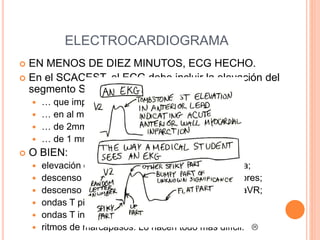 ELECTROCARDIOGRAMA
EN MENOS DE DIEZ MINUTOS, ECG HECHO.
En el SCACEST, el ECG debe incluir la elevación del
segmento S
… que imp
… en al m
… de 2mm
… de 1 mm
O BIEN:
elevación
descenso
descenso
aVR;
ondas T pi
ondas T in
ritmos de marcapasos. Lo hacen todo más difícil. ☹
AN EKG
V2
TOMBSTONE ST ELEVATION
IN ANTERIOR LEAD
INDICATING ACUTE
ANTERIOR WALL MYOCARDIAL
INFARCTION
THE WAY A MEDICAL STUDENT
SEES AN EKG
V2
OTHER SPIKY PART
BUMPY PART OF
UNKNOWN SIGNIFICANCE
RANDOM
LETTER AND
NUMBER
FLAT PART
SPIKY
PART
UP
PART